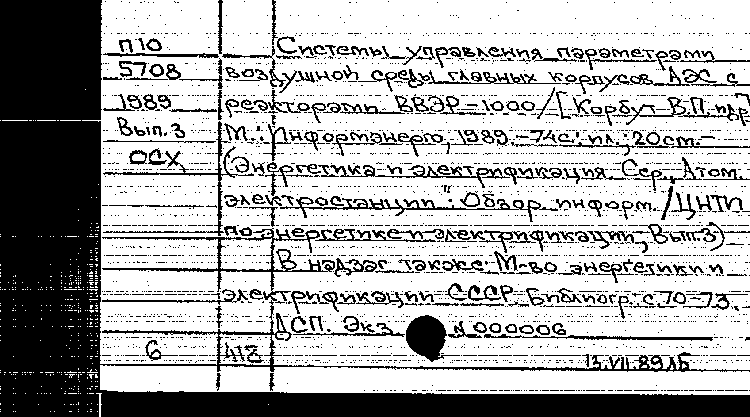 П10 Системы управления параметрами
5708 воздушной среды главных корпусов АЭС с
1989 реакторами ВВЭР-1000/[Корбут В.П. и др]
Вып.3 М.: Информэнерго, 1989.-74с.: ил.; 20см.-
ОСХ (Энергетика и электрификация. Сер., Атом.
электростанции": Обзор. информ. /ЦНТИ
по энергетике и электрификации; Вып.3)
В надзаг также: М-во энергетики и
электрификации СССР. Библиогр.: с.70-73.
ДСП. Экз. N 000006
6 13.VII.89